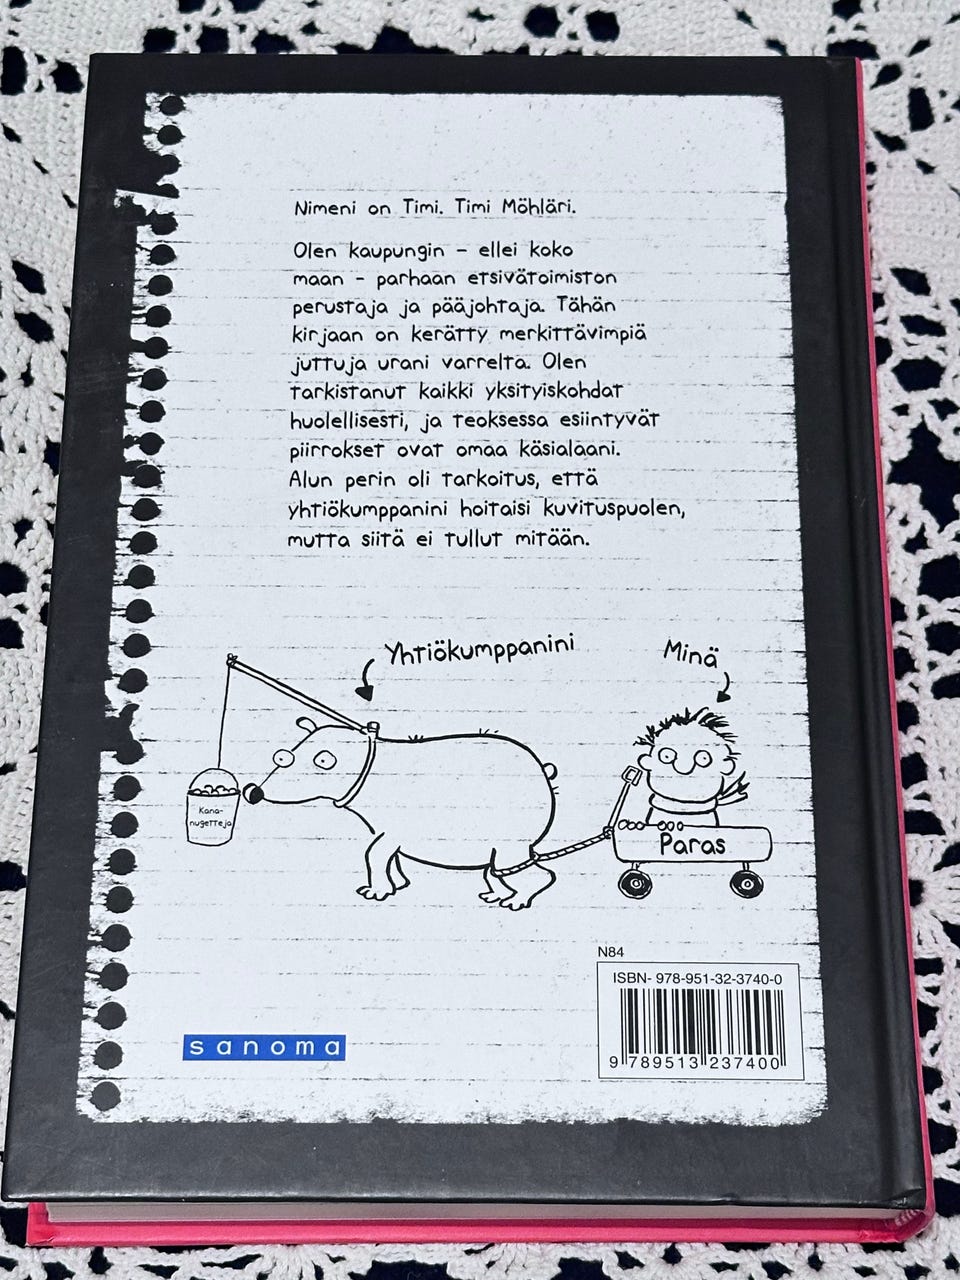 Nimeni on Timi. Timi Möhläri.
Olen kaupungin – ellei koko
maan – parhaan etsivätoimiston
perustaja ja pääjohtaja. Tähän
kirjaan on kerätty merkittävimpiä
juttuja urani varrelta. Olen
tarkistanut kaikki yksityiskohdat
huolellisesti, ja teoksessa esiintyvät
piirrokset ovat omaa käsialaani.
Alun perin oli tarkoitus, että
yhtiökumppanini hoitaisi kuvituspuolen,
mutta siitä ei tullut mitään.
Yhtiökumppanini
Minä
Kana-
nugetteja
Paras
N84
ISBN- 978-951-32-3740-0
9 789513 237400
sanoma